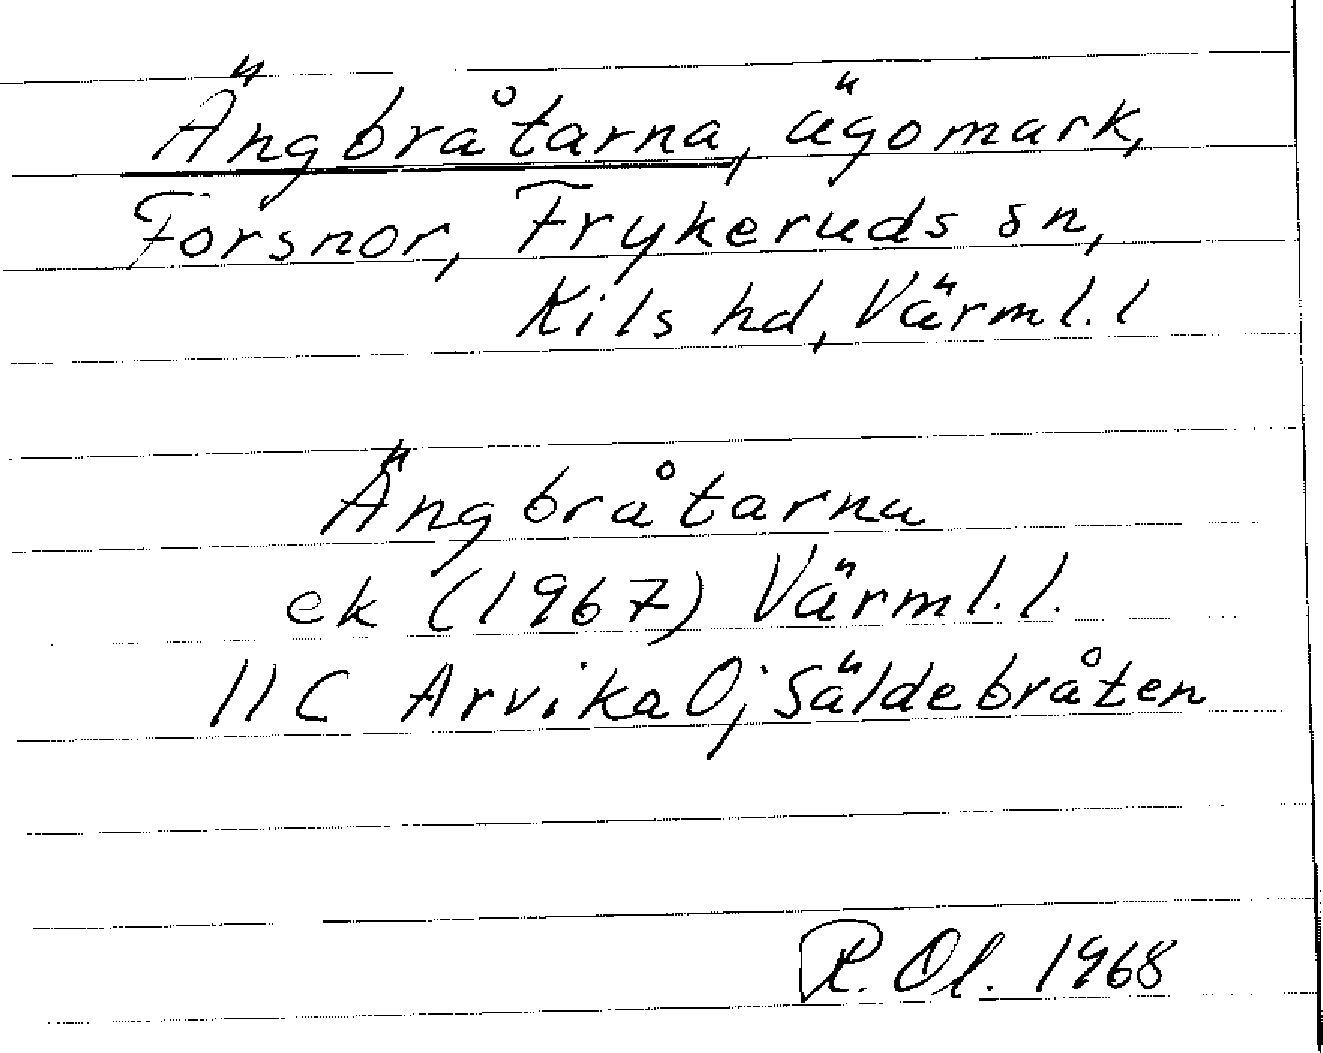 Ängbråtarna, ägomark,
Forsnor, Frykeruds sn,
Kils hd, Värml. l
Ängbråtarna
ek (1967) Värml. l.
11C Arvika Oj Säldebråten
R. Ol. 1968